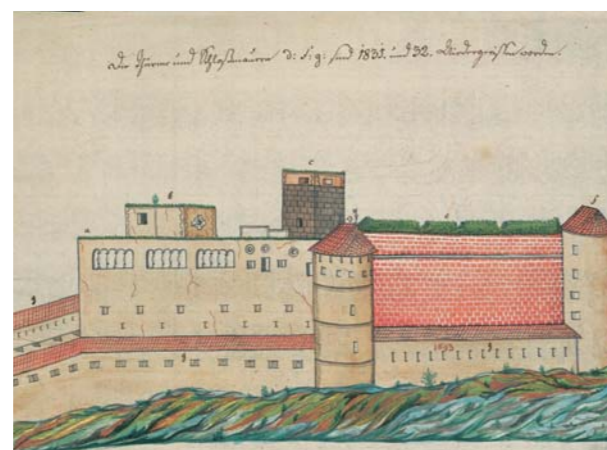 Die Thürme und Schloßmauern d: f: g: sind 1831. und 32. Niedergerissen worden.
c
b
f
d
e
a
g
g
g